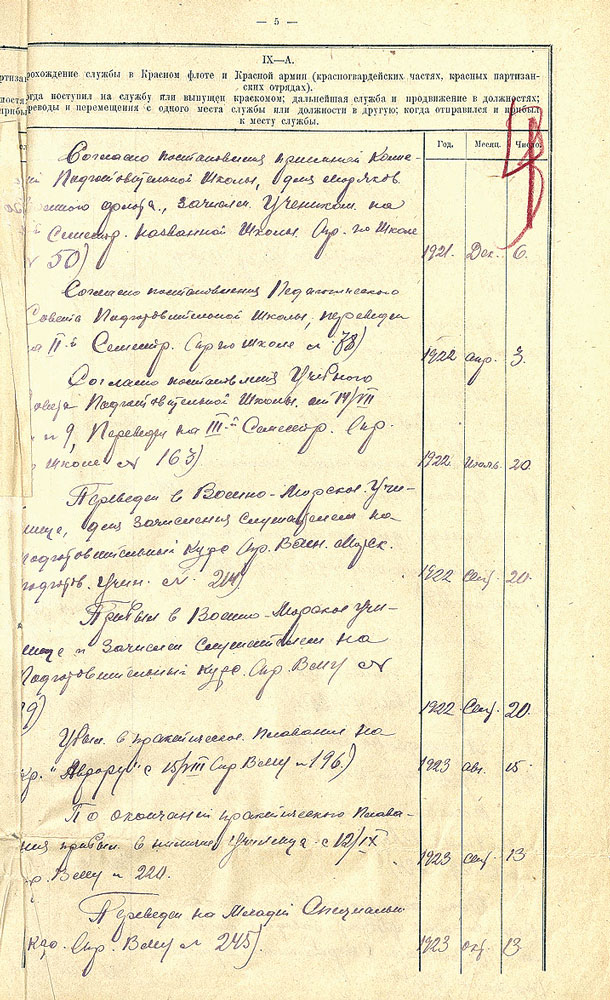 — 5 —
IX—А.
рохождение службы в Красном флоте и Красной армии (красногвардейских частях, красных партизан-
ских отрядах).
огда поступил на службу или выпущен краскомом; дальнейшая служба и продвижение в должностях;
реводы и перемещения с одного места службы или должности в другую; когда отправился и прибыл
к месту службы.
Год. Месяц. Число.
Согласно постановления приемной Коми-
Подготовительной Школы, для моряков
военного флота, зачислен Учеником на
Семестр. названной Школы. Пр. по Школе
№ 50) 1921. Дек. 6.
Согласно постановления Педагогического
Совета Подготовительной Школы, переведен
на II-й Семестр. Пр по школе № 78) 1922 апр. 3.
Согласно постановления Учебного
Совета Подготовительной Школы. от 14/VII
№ 9, Переведен на III-й Семестр. Пр.
школе № 163) 1922 Июль. 20.
Переведен в Военно-Морское Учи-
лище, для зачисления слушателем на
подготовительный курс Пр. Воен. Морск.
подготов. Учил. №. 1922 Сент. 20.
Прибыл в Военно-Морское учи-
лище и зачислен Слушателем на
Подготовительный курс. Пр. Вму №
9) 1922 Сент. 20.
Убыл. в практическое плавание на
кр. "Аврору" с 15/VIII Пр Вму № 196.) 1923 авг. 15.
По окончании практического плава-
ния прибыл в училище с 12/IX
пр. Вму № 220. 1923 сент. 13
Переведен на Младший Специальн.
курс. Пр. Вму № 245). 1923 окт. 13